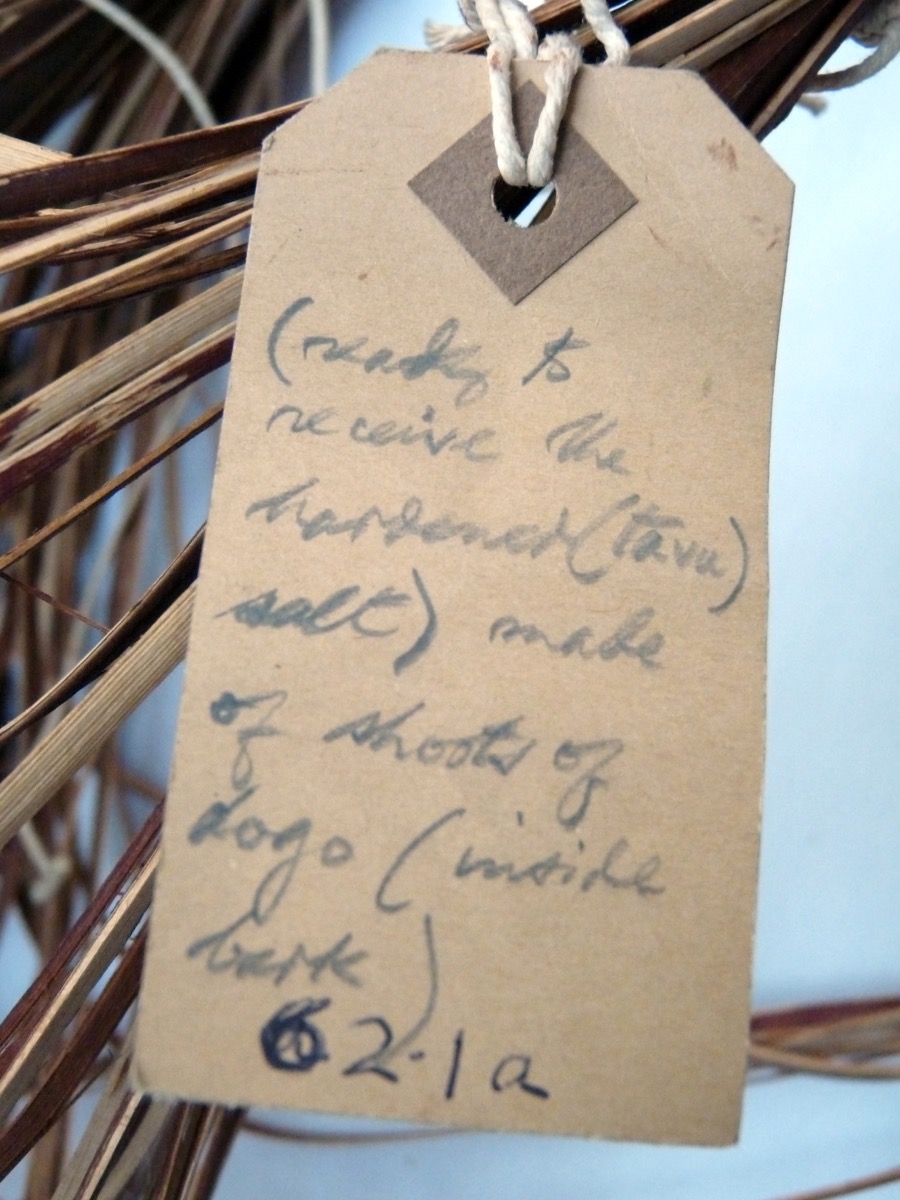 (ready to
receive the
hardened (tavu)
salt) made
of shoots of
dogo (inside
bark)
62.1a